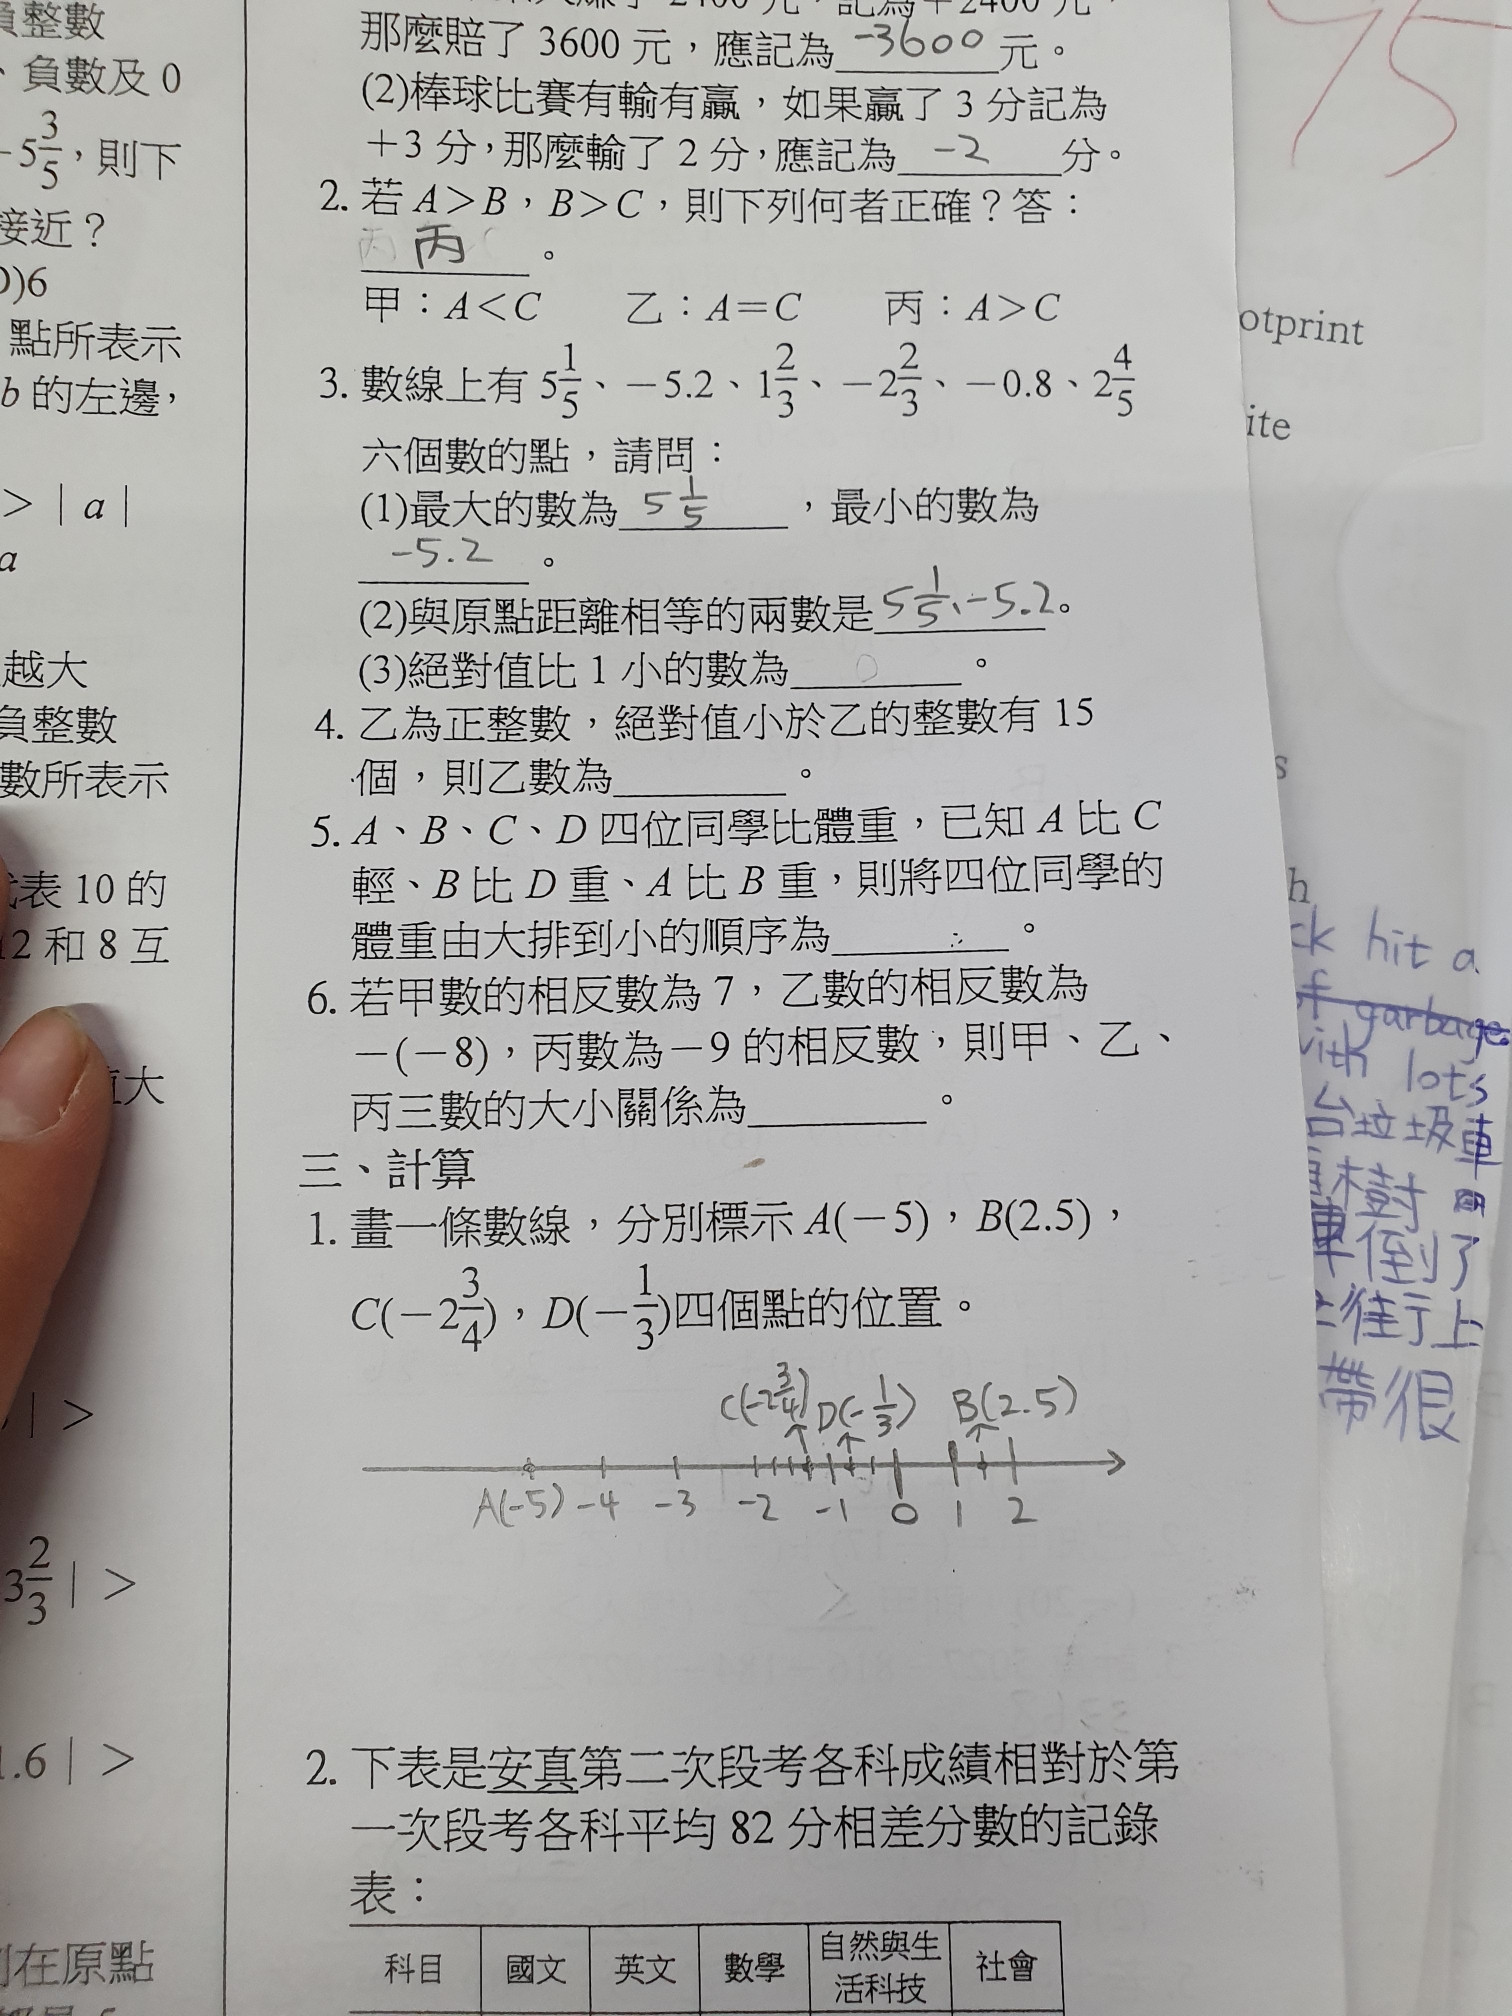 負整數
、負數及 0
-5 3/5,則下
接近?
D)6
點所表示
b 的左邊,
> | a |
a
越大
負整數
數所表示
表 10 的
12 和 8 互
值大
| >
3 2/3 | >
1.6 | >
在原點
那麼賠了 3600 元,應記為 -3600 元。
(2)棒球比賽有輸有贏,如果贏了 3 分記為
+3 分,那麼輸了 2 分,應記為 -2 分。
2. 若 A>B,B>C,則下列何者正確?答:
丙 。
甲:A<C 乙:A=C 丙:A>C
3. 數線上有 5 1/5、-5.2、1 2/3、-2 2/3、-0.8、2 4/5
六個數的點,請問:
(1)最大的數為 5 1/5 ,最小的數為
-5.2 。
(2)與原點距離相等的兩數是 5 1/5、-5.2。
(3)絕對值比 1 小的數為 。
4. 乙為正整數,絕對值小於乙的整數有 15
個,則乙數為 。
5. A、B、C、D 四位同學比體重,已知 A 比 C
輕、B 比 D 重、A 比 B 重,則將四位同學的
體重由大排到小的順序為 。
6. 若甲數的相反數為 7,乙數的相反數為
-(-8),丙數為-9 的相反數,則甲、乙、
丙三數的大小關係為 。
三、計算
1. 畫一條數線,分別標示 A(-5),B(2.5),
C(-2 3/4),D(-1/3)四個點的位置。
C(-2 3/4) D(-1/3) B(2.5)
A(-5) -4 -3 -2 -1 0 1 2
2. 下表是安真第二次段考各科成績相對於第
一次段考各科平均 82 分相差分數的記錄
表:
科目 國文 英文 數學 自然與生活科技 社會
75
otprint
ite
s
h
ck hit a
of garbage
with lots
台垃圾車
樹
車倒了
街上
帶很